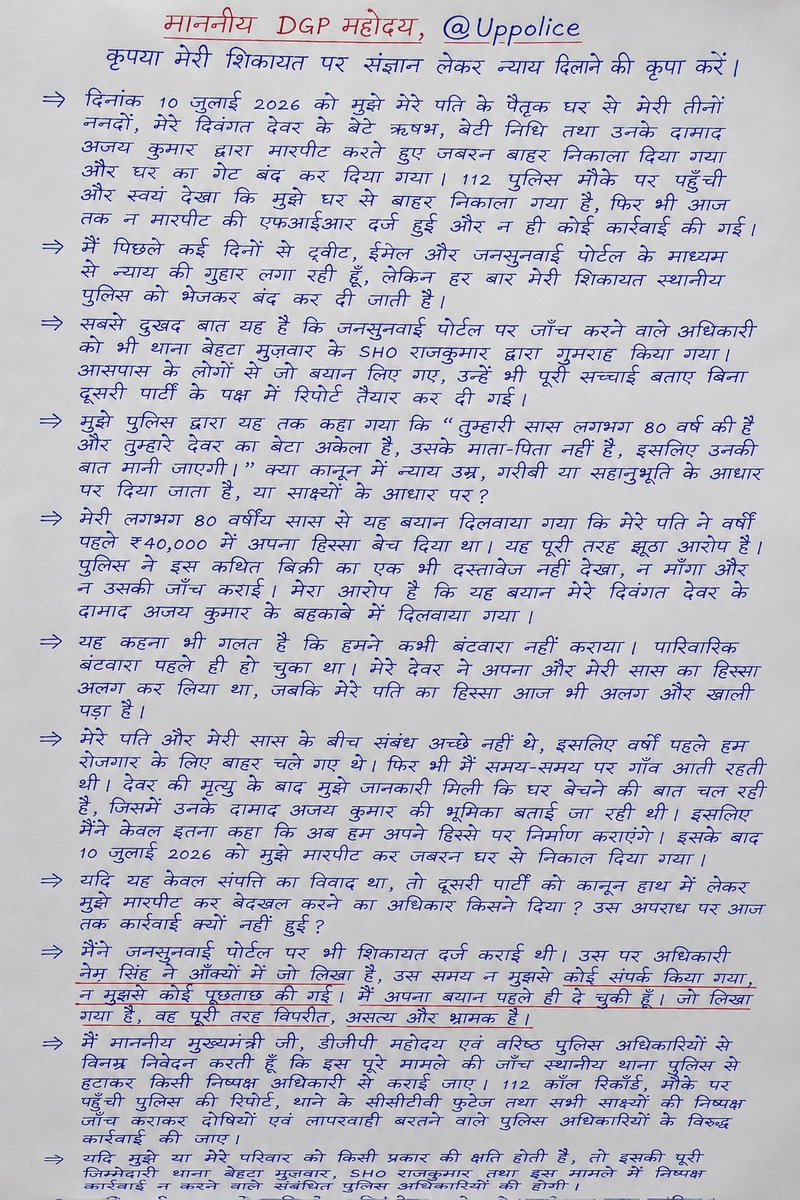 माननीय DGP महोदय, @Uppolice
कृपया मेरी शिकायत पर संज्ञान लेकर न्याय दिलाने की कृपा करें।
⇒ दिनांक 10 जुलाई 2026 को मुझे मेरे पति के पैतृक घर से मेरी तीनों
ननदों, मेरे दिवंगत देवर के बेटे ऋषभ, बेटी निधि तथा उनके दामाद
अजय कुमार द्वारा मारपीट करते हुए जबरन बाहर निकाला दिया गया
और घर का गेट बंद कर दिया गया। 112 पुलिस मौके पर पहुँची
और स्वयं देखा कि मुझे घर से बाहर निकाला गया है, फिर भी आज
तक न मारपीट की एफआईआर दर्ज हुई और न ही कोई कार्रवाई की गई।
⇒ मैं पिछले कई दिनों से ट्वीट, ईमेल और जनसुनवाई पोर्टल के माध्यम
से न्याय की गुहार लगा रही हूँ, लेकिन हर बार मेरी शिकायत स्थानीय
पुलिस को भेजकर बंद कर दी जाती है।
⇒ सबसे दुखद बात यह है कि जनसुनवाई पोर्टल पर जाँच करने वाले अधिकारी
को भी थाना बेहटा मुज़वार के SHO राजकुमार द्वारा गुमराह किया गया।
आसपास के लोगों से जो बयान लिए गए, उन्हें भी पूरी सच्चाई बताए बिना
दूसरी पार्टी के पक्ष में रिपोर्ट तैयार कर दी गई।
⇒ मुझे पुलिस द्वारा यह तक कहा गया कि “तुम्हारी सास लगभग 80 वर्ष की है
और तुम्हारे देवर का बेटा अकेला है, उसके माता-पिता नहीं है, इसलिए उनकी
बात मानी जाएगी।” क्या कानून में न्याय उम्र, गरीबी या सहानुभूति के आधार
पर दिया जाता है, या साक्ष्यों के आधार पर?
⇒ मेरी लगभग 80 वर्षीय सास से यह बयान दिलवाया गया कि मेरे पति ने वर्षों
पहले ₹40,000 में अपना हिस्सा बेच दिया था। यह पूरी तरह झूठा आरोप है।
पुलिस ने इस कथित बिक्री का एक भी दस्तावेज नहीं देखा, न माँगा और
न उसकी जाँच कराई। मेरा आरोप है कि यह बयान मेरे दिवंगत देवर के
दामाद अजय कुमार के बहकाबे में दिलवाया गया।
⇒ यह कहना भी गलत है कि हमने कभी बंटवारा नहीं कराया। पारिवारिक
बंटवारा पहले ही हो चुका था। मेरे देवर ने अपना और मेरी सास का हिस्सा
अलग कर लिया था, जबकि मेरे पति का हिस्सा आज भी अलग और खाली
पड़ा है।
⇒ मेरे पति और मेरी सास के बीच संबंध अच्छे नहीं थे, इसलिए वर्षों पहले हम
रोजगार के लिए बाहर चले गए थे। फिर भी मैं समय-समय पर गाँव आती रहती
थी। देवर की मृत्यु के बाद मुझे जानकारी मिली कि घर बेचने की बात चल रही
है, जिसमें उनके दामाद अजय कुमार की भूमिका बताई जा रही थी। इसलिए
मैंने केवल इतना कहा कि अब हम अपने हिस्से पर निर्माण कराएंगे। इसके बाद
10 जुलाई 2026 को मुझे मारपीट कर जबरन घर से निकाल दिया गया।
⇒ यदि यह केवल संपत्ति का विवाद था, तो दूसरी पार्टी को कानून हाथ में लेकर
मुझे मारपीट कर बेदखल करने का अधिकार किसने दिया? उस अपराध पर आज
तक कार्रवाई क्यों नहीं हुई?
⇒ मैंने जनसुनवाई पोर्टल पर भी शिकायत दर्ज कराई थी। उस पर अधिकारी
नेम सिंह ने आँक्यों में जो लिखा है, उस समय न मुझसे कोई संपर्क किया गया,
न मुझसे कोई पूछताछ की गई। मैं अपना बयान पहले ही दे चुकी हूँ। जो लिखा
गया है, वह पूरी तरह विपरीत, असत्य और भ्रामक है।
⇒ मैं माननीय मुख्यमंत्री जी, डीजीपी महोदय एवं वरिष्ठ पुलिस अधिकारियों से
विनम्र निवेदन करती हूँ कि इस पूरे मामले की जाँच स्थानीय थाना पुलिस से
हटाकर किसी निष्पक्ष अधिकारी से कराई जाए। 112 कॉल रिकॉर्ड, मौके पर
पहुँची पुलिस की रिपोर्ट, थाने के सीसीटीवी फुटेज तथा सभी साक्ष्यों की निष्पक्ष
जाँच कराकर दोषियों एवं लापरवाही बरतने वाले पुलिस अधिकारियों के विरुद्ध
कार्रवाई की जाए।
⇒ यदि मुझे या मेरे परिवार को किसी प्रकार की क्षति होती है, तो इसकी पूरी
जिम्मेदारी थाना बेहटा मुज़वार, SHO राजकुमार तथा इस मामले में निष्पक्ष
कार्रवाई न करने वाले संबंधित पुलिस अधिकारियों की होगी।